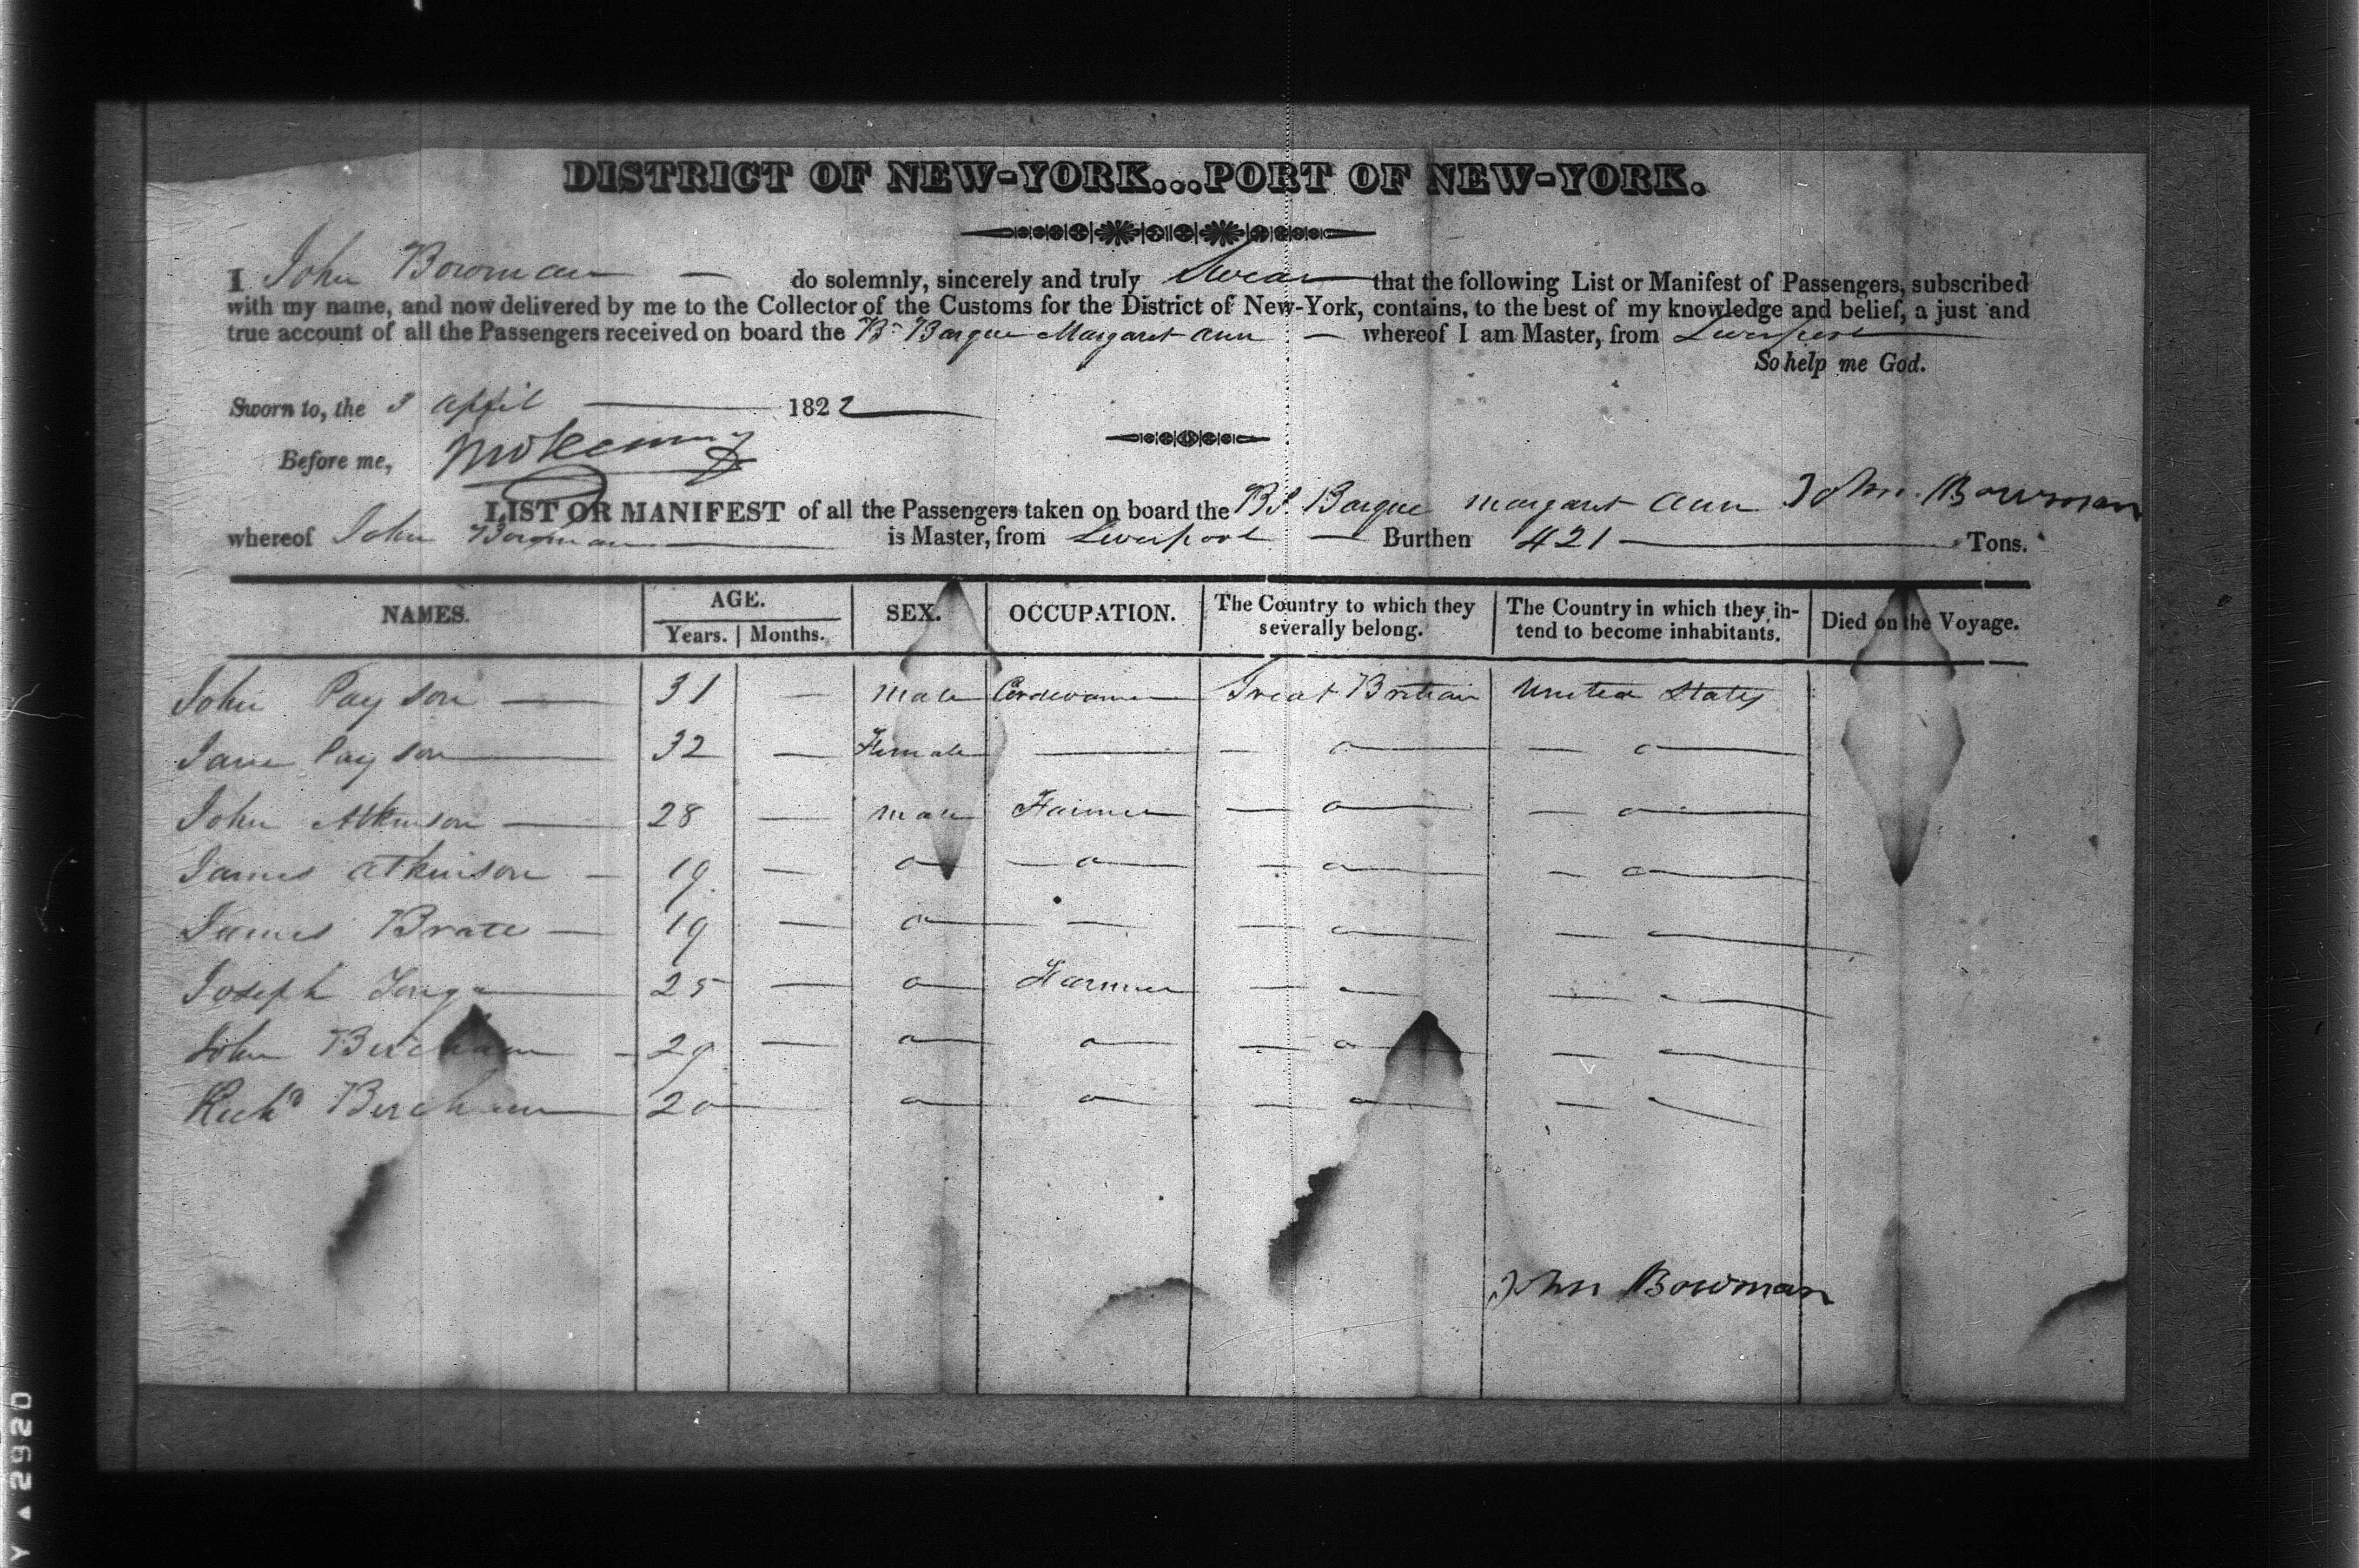 DISTRICT OF NEW-YORK...PORT OF NEW-YORK.
I John Bowman — do solemnly, sincerely and truly Swear that the following List or Manifest of Passengers, subscribed
with my name, and now delivered by me to the Collector of the Customs for the District of New-York, contains, to the best of my knowledge and belief, a just and
true account of all the Passengers received on board the Br Barque Margaret Ann — whereof I am Master, from Liverpool
So help me God.
Sworn to, the 3 April — 1822
Before me,
LIST OR MANIFEST of all the Passengers taken on board the Br Barque Margaret Ann John Bowman
whereof John Bowman — is Master, from Liverpool — Burthen 421 — Tons.
NAMES. AGE. SEX. OCCUPATION. The Country to which they severally belong. The Country in which they in-tend to become inhabitants. Died on the Voyage.
Years. Months.
John Payson — 31 — Male Cordwainer Great Britian United States
Jane Payson — 32 — Female — — o — — o —
John Atkinson — 28 — male Farmer — o — — o —
James Atkinson — 19 — o — o — — o — — o —
James Brate — 19 — o — — — o — — o —
Joseph 25 — o — Farmer — o — — o —
John Bercham — 29 — o — o — o — — o —
Richd Bercham — 20 — o — o — o — — o —
John Bowman
Y ▲2920